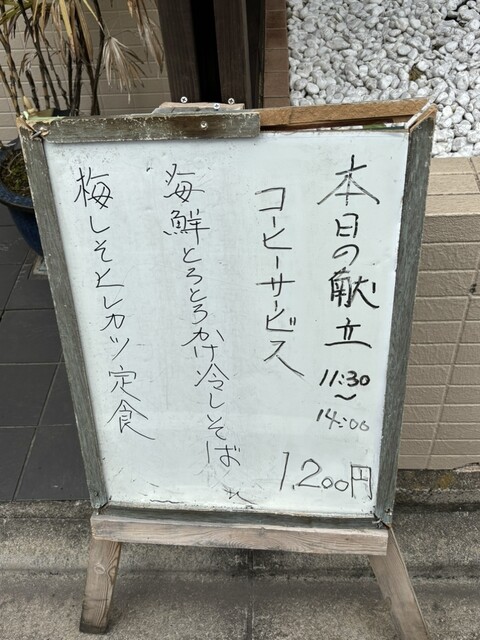 本日の献立
11:30
〜
14:00
1,200円
コーヒーサービス
海鮮とろとろかけ冷しそば
梅しそとレカツ定食